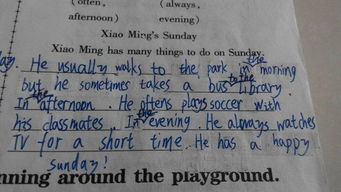 (often, (always,
afternoon) evening)
Xiao Ming's Sunday
Xiao Ming has many things to do on Sunday.
ay. He usually walks to the park in the morning
but he sometimes takes a bus to the library.
In the afternoon. He oftens plays soccer with
his classmates. In the evening. He always watches
TV for a short time. He has a happy
Sunday!
nning around the playground.